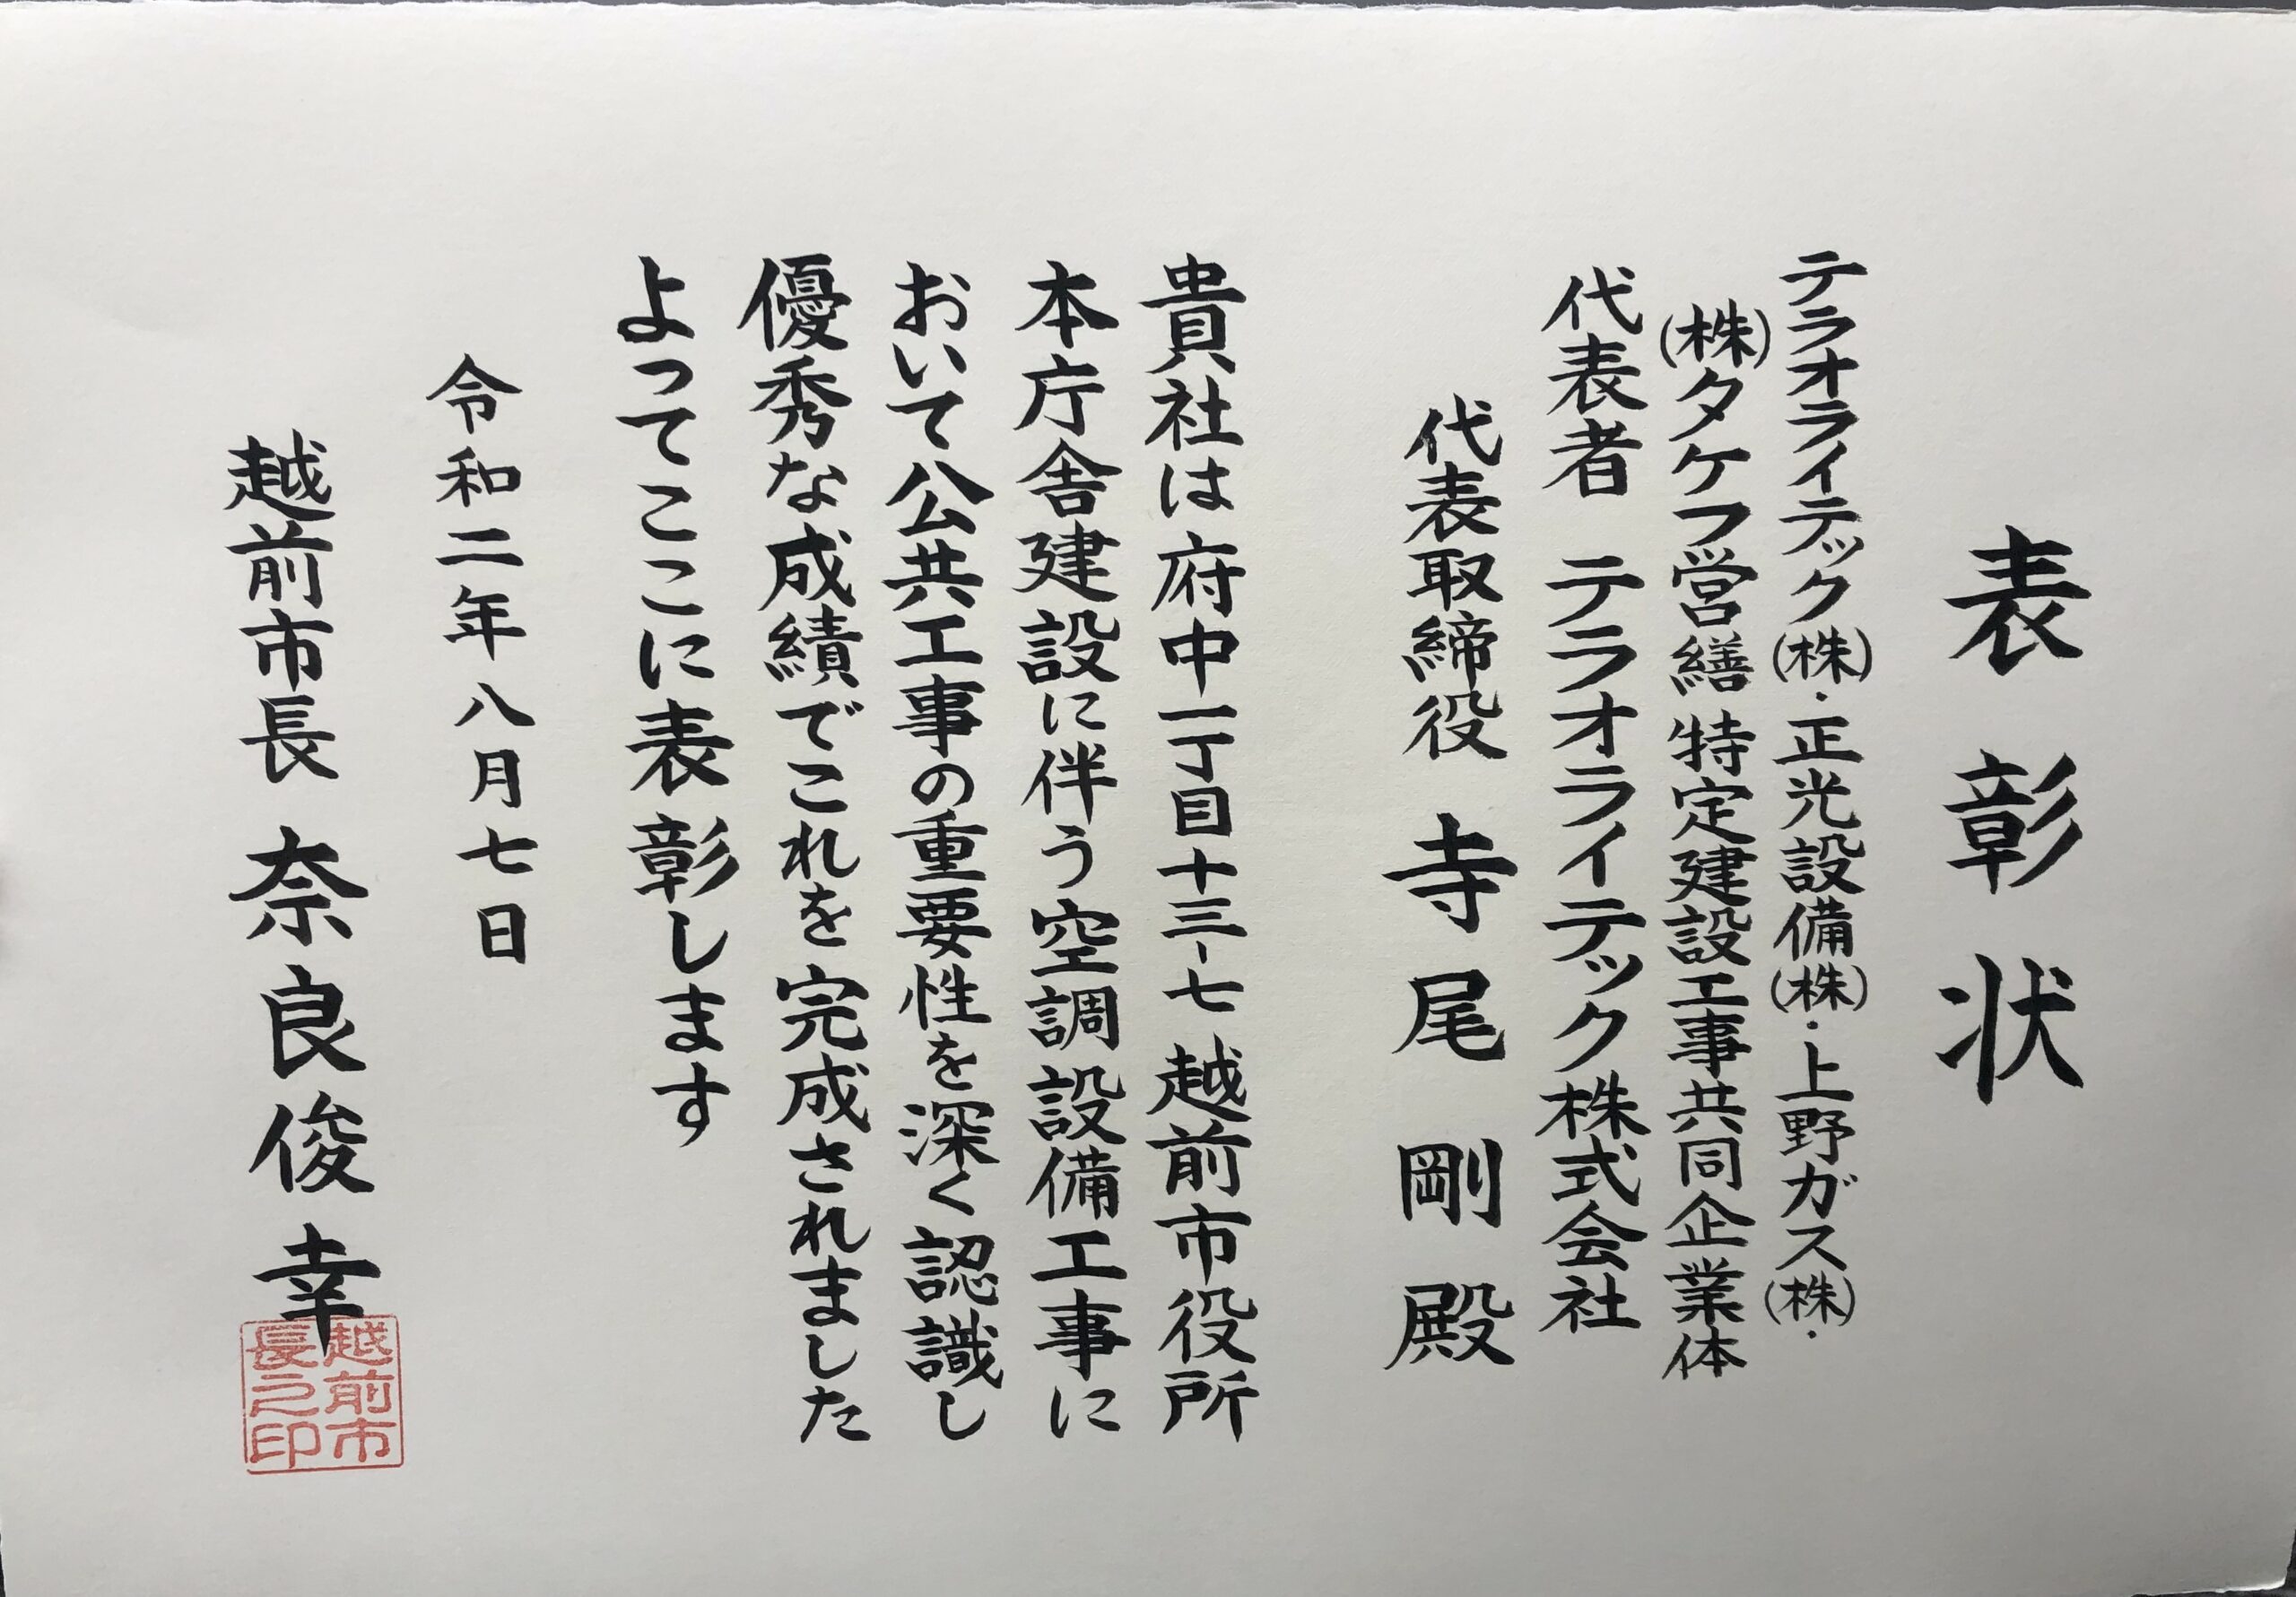 表彰状
テラオライテック(株)・正光設備(株)・上野ガス(株)・
(株)タケフ営繕 特定建設工事共同企業体
代表者 テラオライテック株式会社
代表取締役 寺尾 剛 殿
貴社は府中一丁目十三-七 越前市役所
本庁舎建設に伴う空調設備工事に
おいて公共工事の重要性を深く認識し
優秀な成績でこれを完成されました
よってここに表彰します
令和二年八月七日
越前市長 奈良俊幸
越前市
長之印